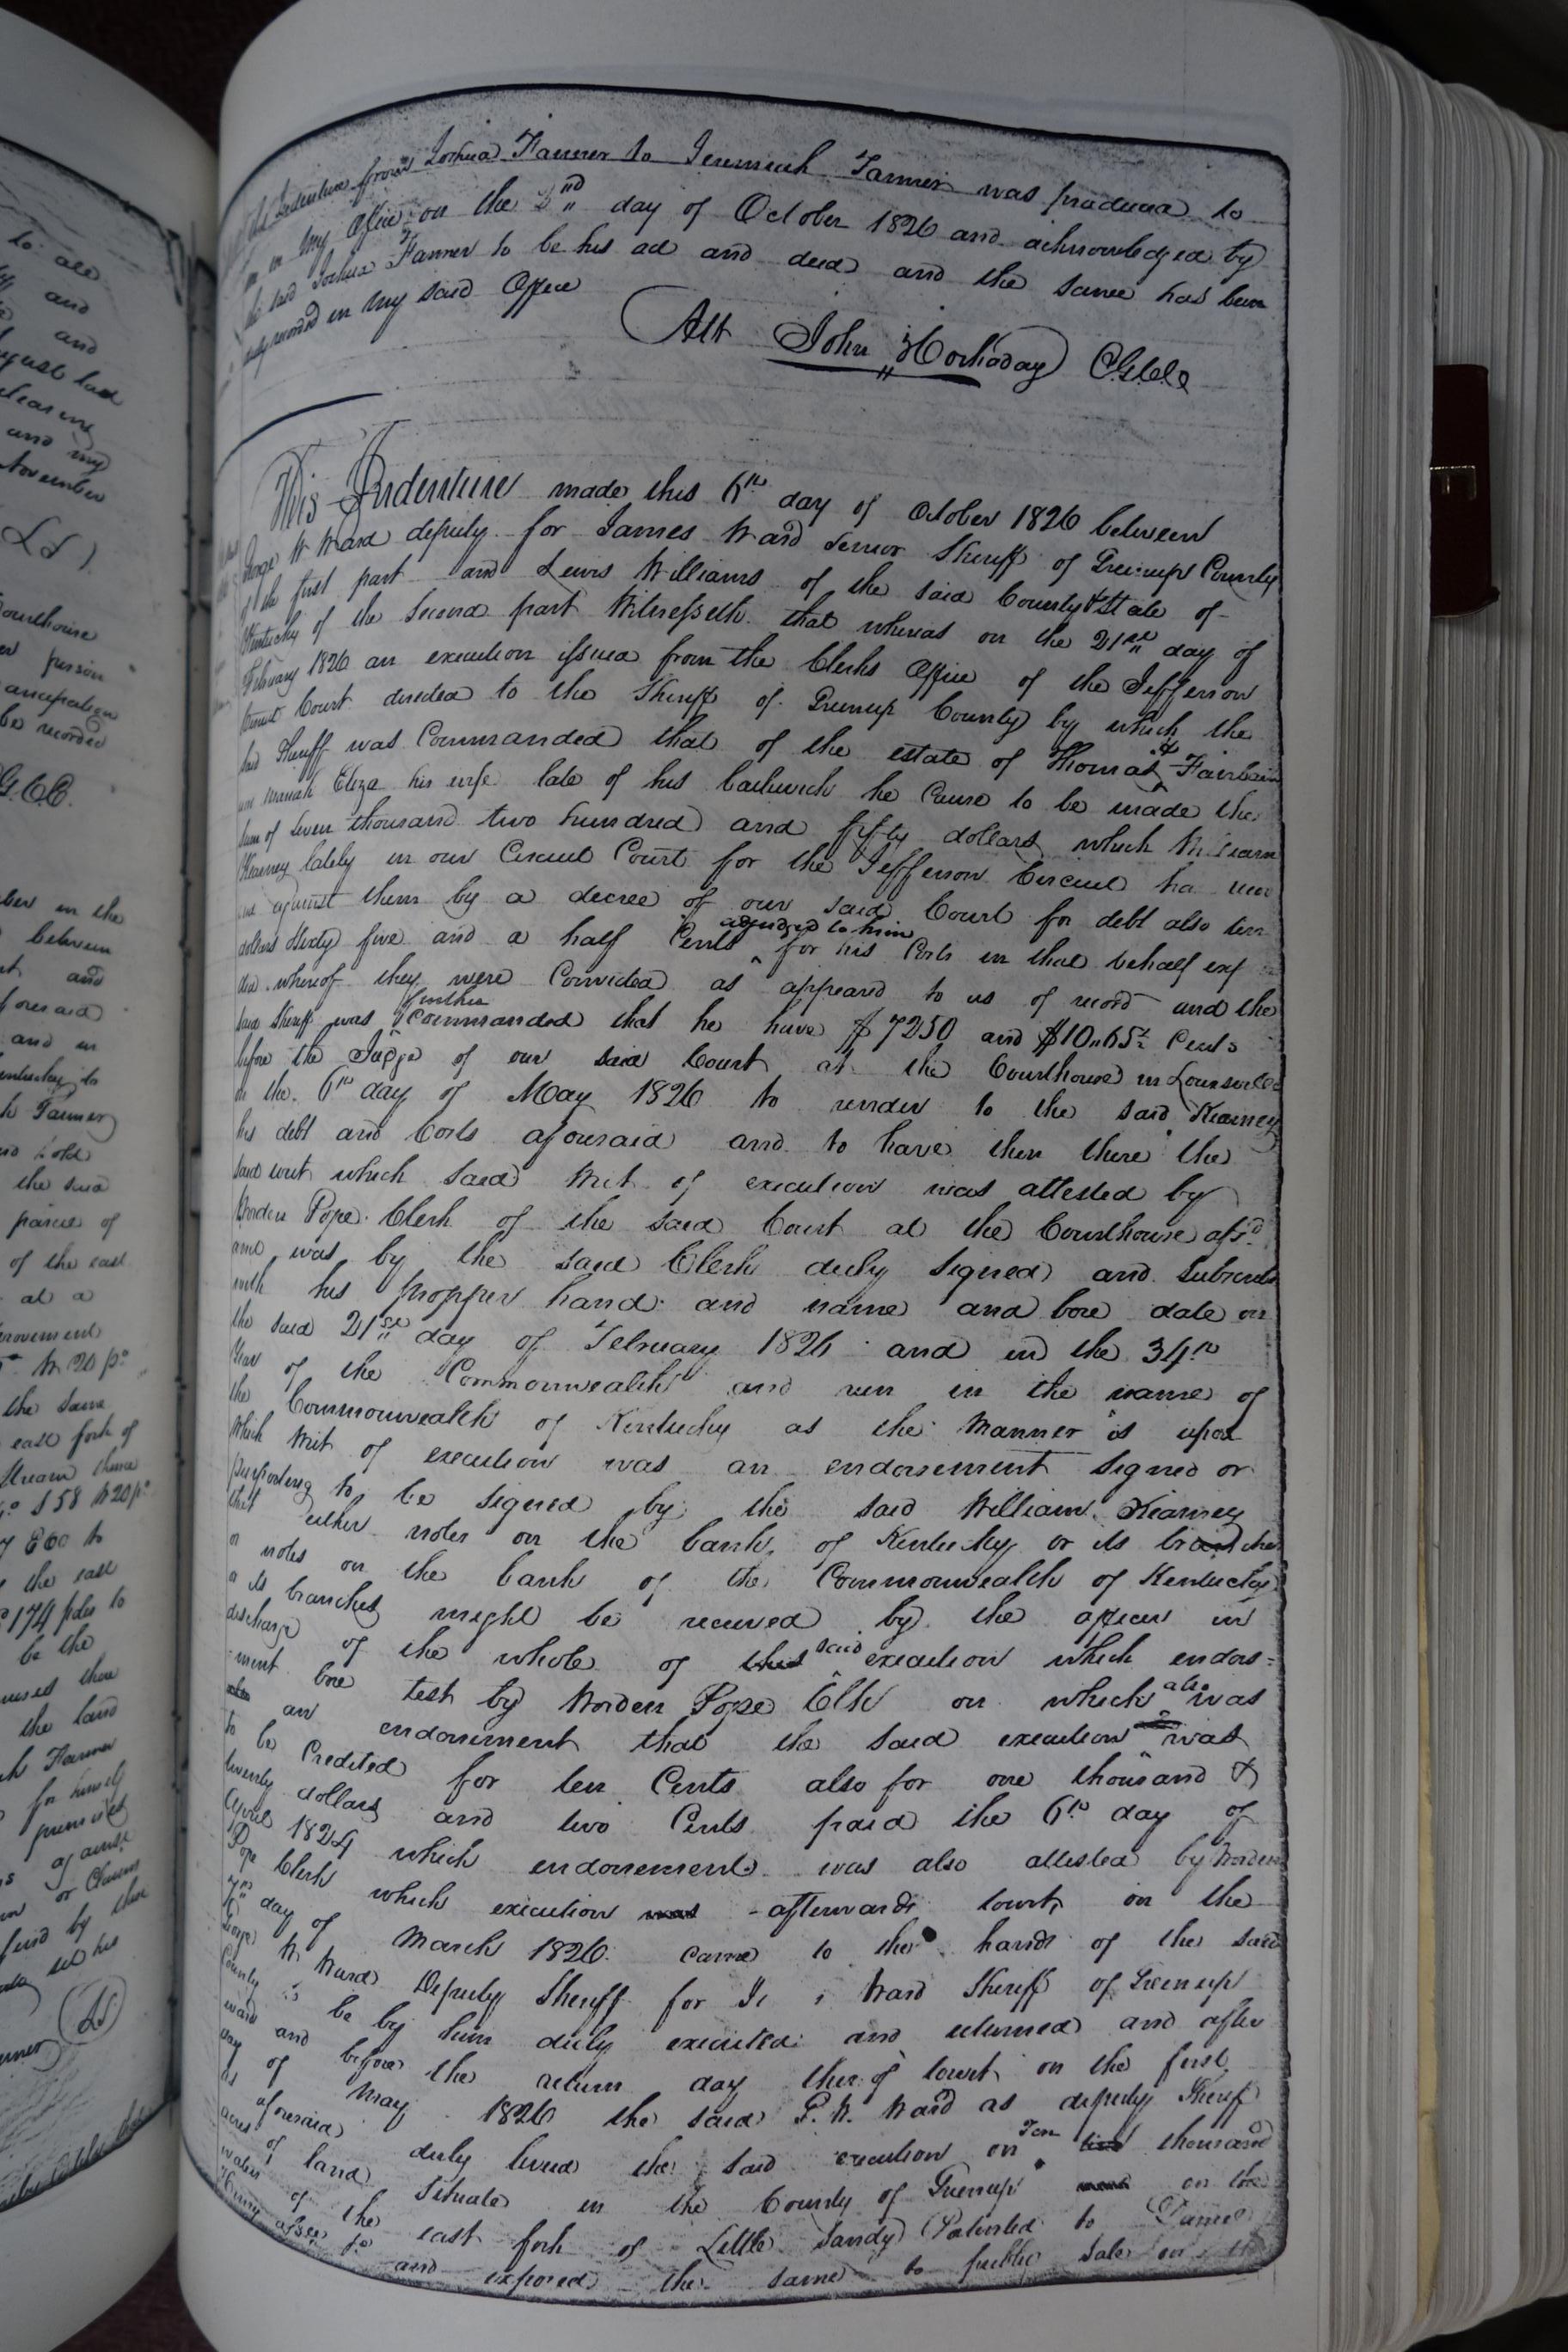 to all
and
and
August last
clearing
and my
November
(LS)
Courthouse
person
be recorded
G.C.C.
in the
between
and
aforesaid
and in
Kentucky to
Tanner
sold
the said
parcel of
of the east
at a
W 20 po
the same
east fork of
thence
S 58 W 20 po
E 60 to
the east
174 poles to
be the
the land
Tanner
for himself
against
or Claims
by these
set his
(LS)
Indenture from Joshua Tanner to Jeremiah Tanner was produced to
in my office on the 2nd day of October 1826 and acknowledged by
the said Joshua Tanner to be his act and deed and the same has been
duly recorded in my said Office
Att John Hockaday C.G.C.C.
This Indenture made this 6th day of October 1826 between
George W Ward deputy for James Ward senior Sheriff of Greenup County
of the first part and Lewis Williams of the said County & State of
Kentucky of the second part Witnesseth that whereas on the 21st day of
February 1826 an execution issued from the Clerks Office of the Jefferson
Circuit Court directed to the Sheriff of Greenup County by which the
said Sheriff was Commanded that of the estate of Thomas & Fairbairn
Mariah Eliza his wife late of his bailiwick he Cause to be made the
sum of seven thousand two hundred and fifty dollars which William
Kearney lately in our Circuit Court for the Jefferson Circuit ha
against them by a decree of our said Court for debt also ten
dollars Sixty five and a half Cents adjudged to him for his Costs in that behalf
whereof they were Convicted as appeared to us of record and the
said Sheriff was further Commanded that he have $7250 and $10.65½ Cents
before the Judge of our said Court at the Courthouse in Louisville
on the 6th day of May 1826 to render to the said Kearney
his debt and Costs aforesaid and to have then there the
said writ which said Writ of execution was attested by
Worden Pope Clerk of the said Court at the Courthouse afsd
and was by the said Clerk duly signed and subscribed
with his propper hand and name and bore date on
the said 21st day of February 1826 and in the 34th
Year of the Commonwealth and run in the name of
the Commonwealth of Kentucky as the Manner is upon
which Writ of execution was an endorsement signed or
purporting to be signed by the said William Kearney
that either notes on the bank of Kentucky or its branches
or notes on the bank of the Commonwealth of Kentucky
or its branches might be received by the officer in
discharge of the whole of this said execution which endors=
=ment bore test by Worden Pope Clk on which also was
an endorsement that the said execution was
to be Credited for ten Cents also for one thousand &
twenty dollars and two Cents paid the 6th day of
April 1824 which endorsements was also attested by Worden
Pope Clerk which execution was afterwards towit on the
7th day of March 1826 came to the hands of the said
George W Ward Deputy Sheriff for Ward Sheriff of Greenup
County to be by him duly executed and returned and after
ward and before the return day thereof towit on the first
day of May 1826 the said G. W. Ward as deputy Sheriff
as aforesaid duly levied the said execution on Ten thousand
acres of land situate in the County of Greenup on the
waters of the east fork of Little Sandy Patented to
and exposed the same to public sale on